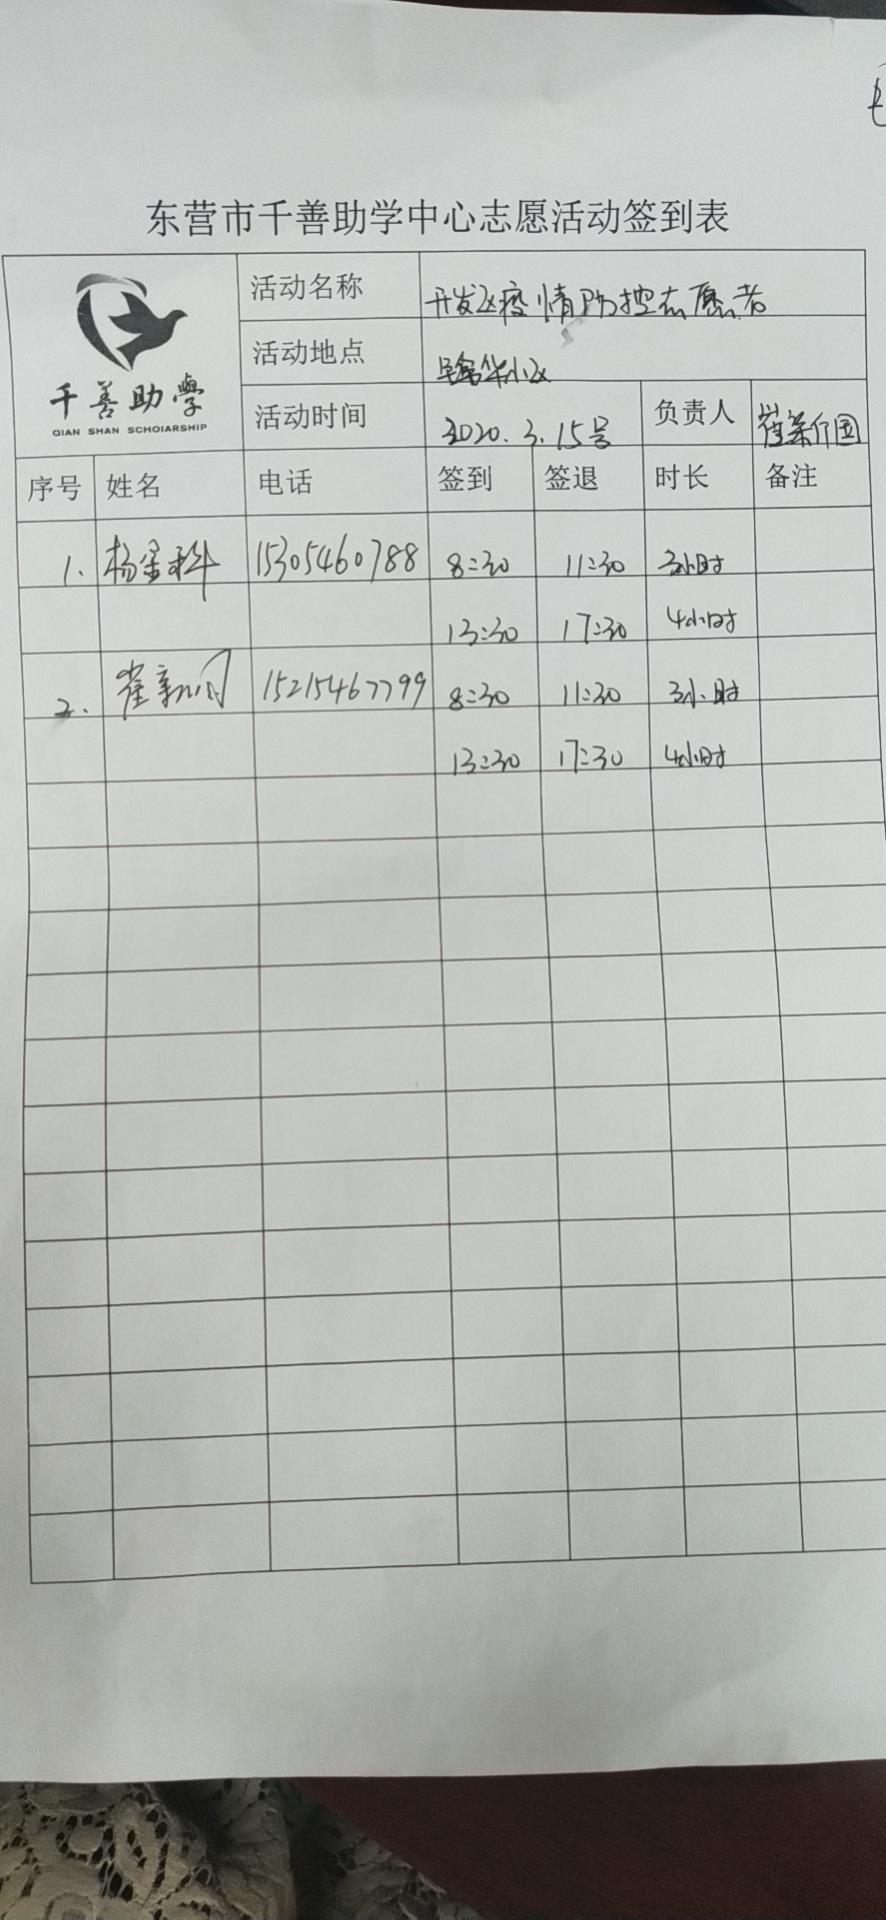 东营市千善助学中心志愿活动签到表
千善助學
QIAN SHAN SCHOlARSHIP
活动名称 开发区疫情防控志愿者
活动地点 华小区
活动时间 2020.3.15号 负责人 崔新国
序号 姓名 电话 签到 签退 时长 备注
1. 杨金科 15305460788 8:30 11:30 3小时
13:30 17:30 4小时
2. 崔新国 15215467799 8:30 11:30 3小时
13:30 17:30 4小时